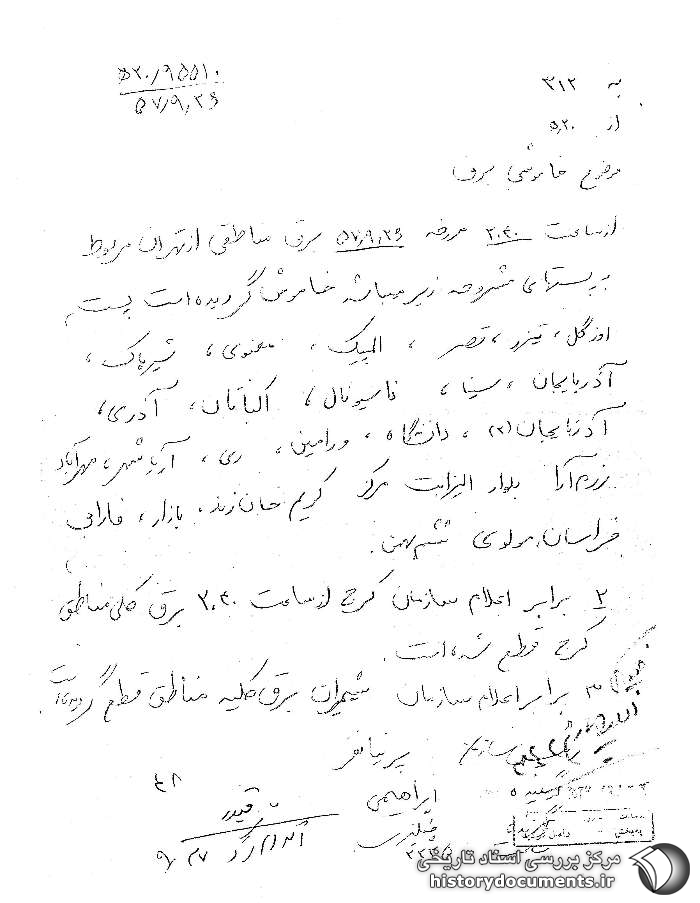 ۵۲۰/۹۵۵۱۰
۵۷/۹/۲۶
به ۳۱۲
از ۵۲۰
موضوع خاموشی برق
از ساعت ۲۰:۳۰ مورخه ۵۷/۹/۲۶ برق مناطقی از تهران مربوط
به پستهای مشروحه زیر میباشد خاموش گردیده است پست
اوزگل، قصر، المپیک، معنوی، شیرپاک،
آذربایجان، سینا، ناسیونال، اکباتان، آذری،
آذربایجان (۲)، دانشگاه، ورامین، ری، آریاشهر، مهرآباد
رزم‌آرا بلوار الیزابت مرکز کریم خان زند، بازار، فارابی
خراسان، مولوی ششم بهمن.
۲ برابر اعلام سازمان کرج از ساعت ۲۰:۳۰ برق کلی مناطق
کرج قطع شده است.
۳ برابر اعلام سازمان شمیران برق کلیه مناطق قطع گردیده است
پرنیانفر
۴۸
ابراهیمی
۹/۲۷
مرکز بررسی اسناد تاریخی
historydocuments.ir